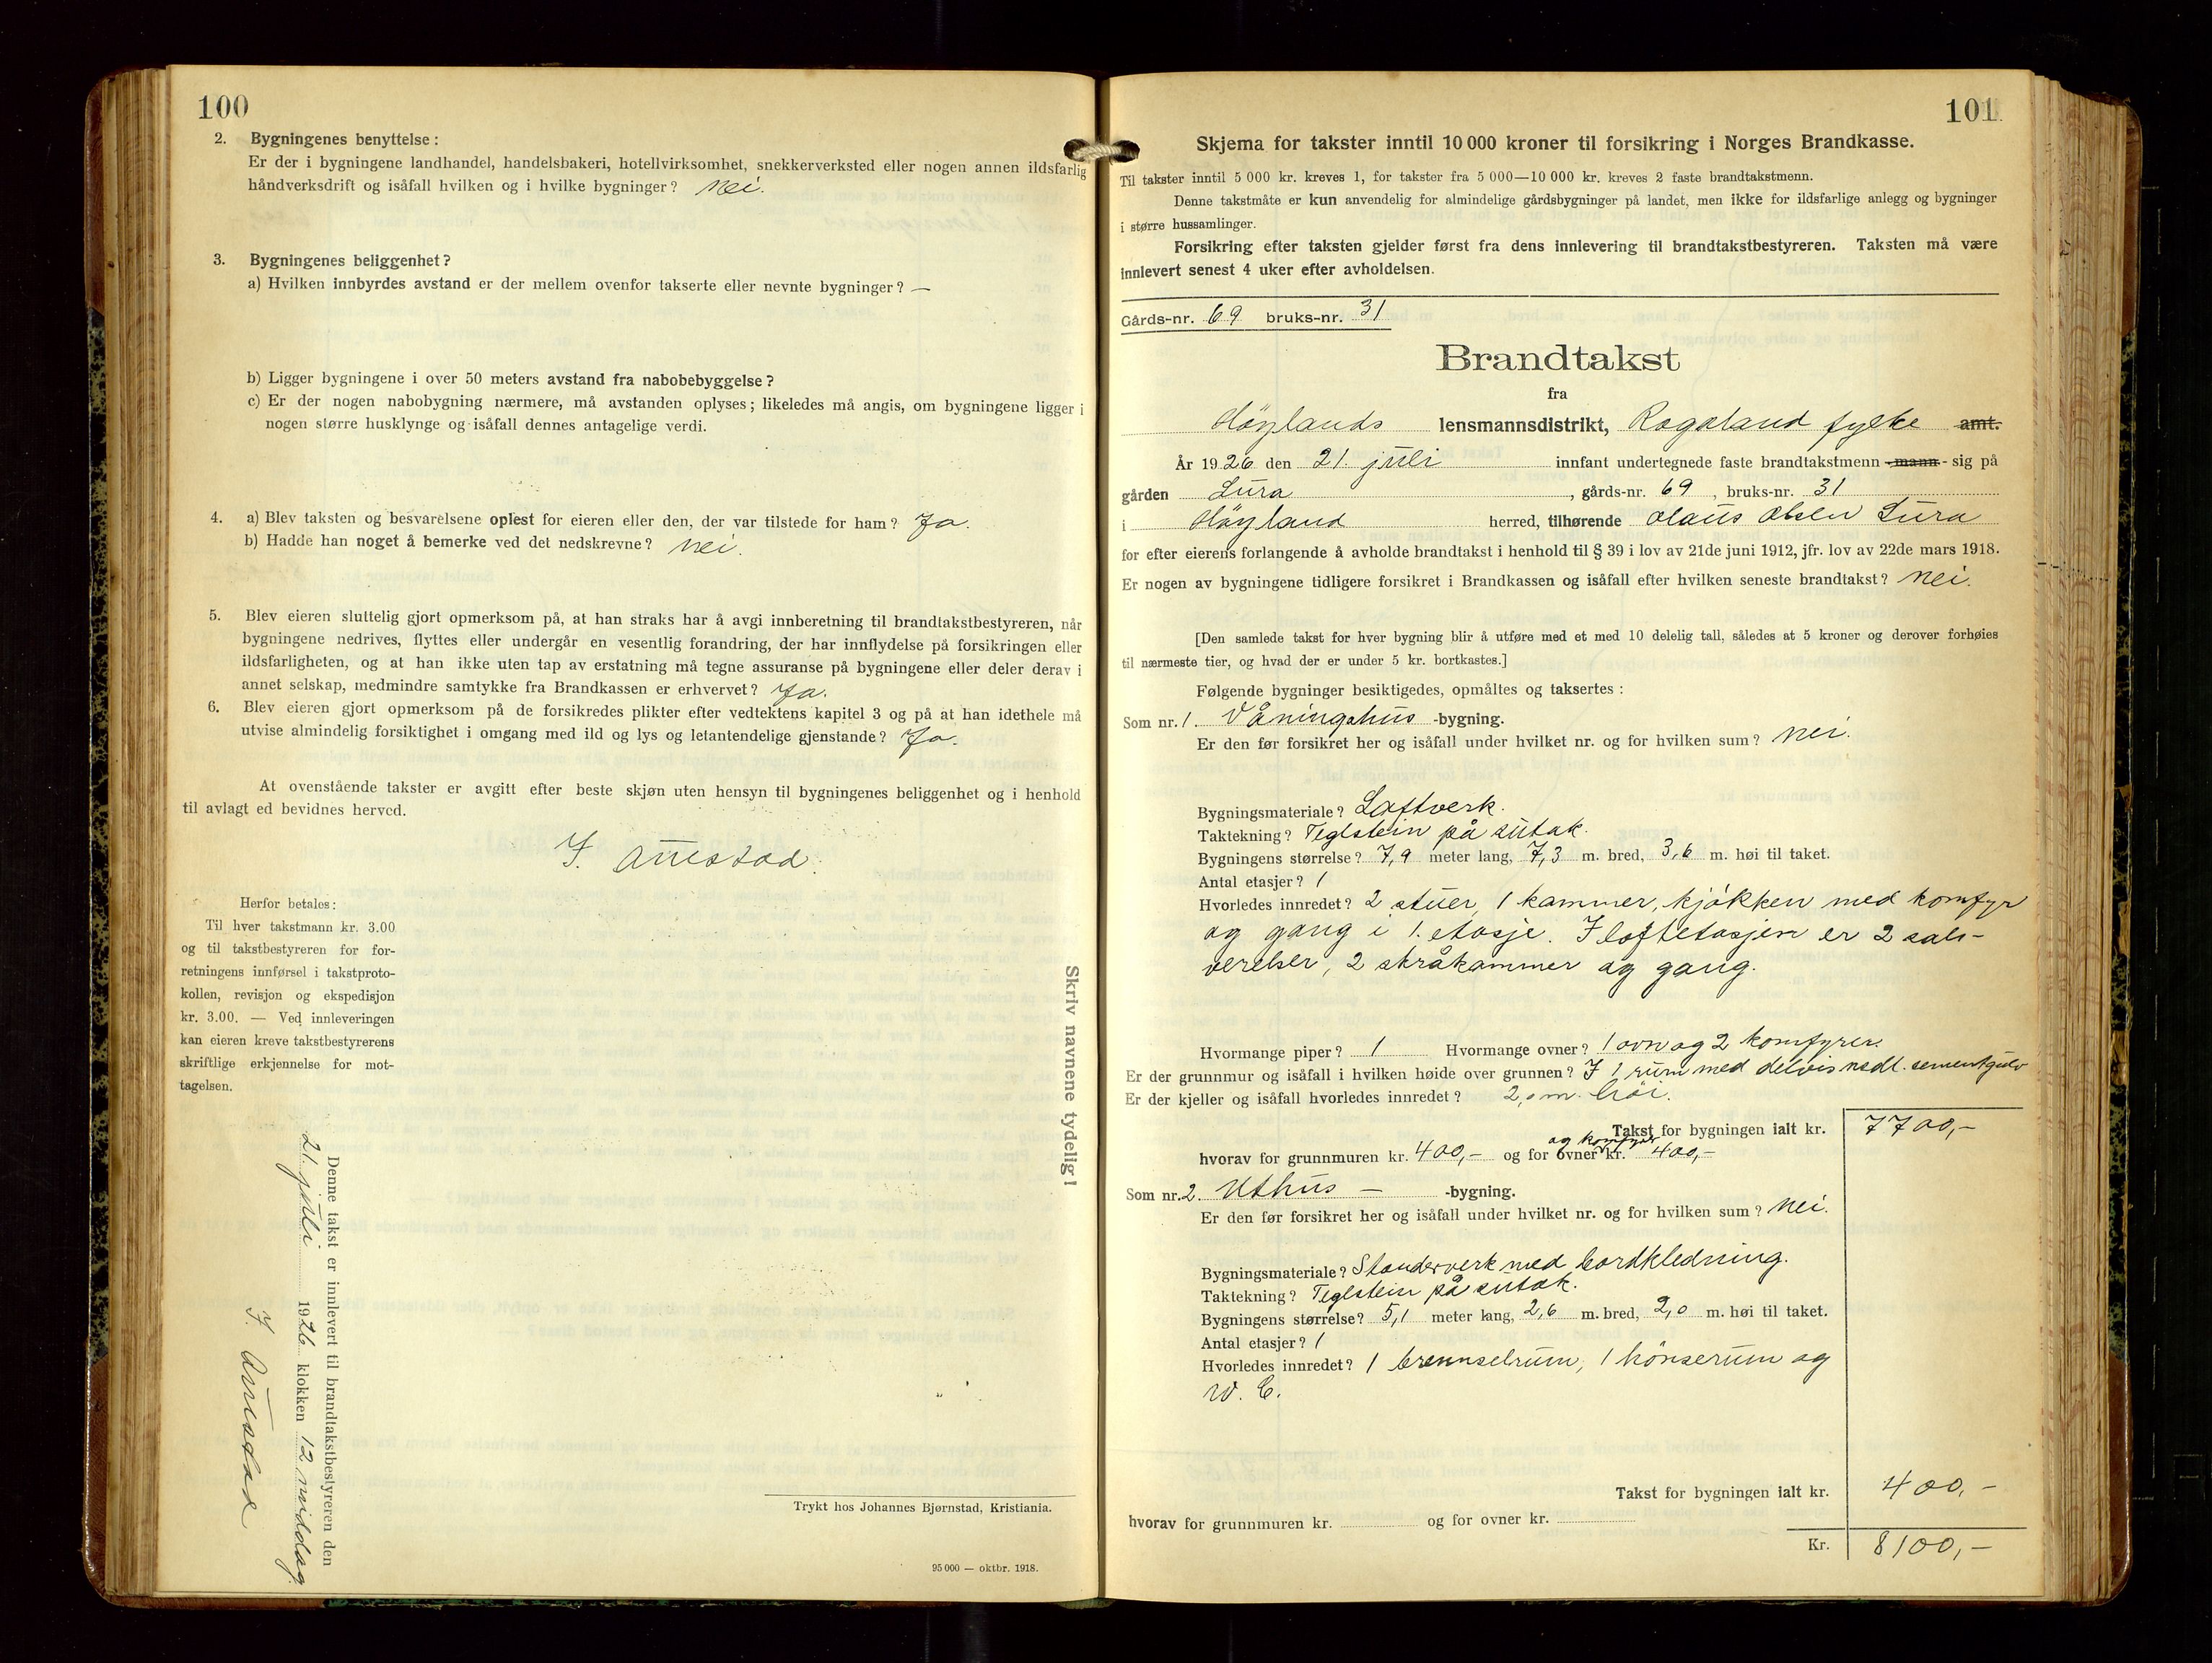 100
2. Bygningenes benyttelse:
Er der i bygningene landhandel, handelsbakeri, hotellvirksomhet, snekkerverksted eller nogen annen ildsfarlig
håndverksdrift og isåfall hvilken og i hvilke bygninger? nei.
3. Bygningenes beliggenhet?
a) Hvilken innbyrdes avstand er der mellem ovenfor takserte eller nevnte bygninger? —
b) Ligger bygningene i over 50 meters avstand fra nabobebyggelse?
c) Er der nogen nabobygning nærmere, må avstanden oplyses; likeledes må angis, om bygningene ligger i
nogen større husklynge og isåfall dennes antagelige verdi.
4. a) Blev taksten og besvarelsene oplest for eieren eller den, der var tilstede for ham? Ja.
b) Hadde han noget å bemerke ved det nedskrevne? nei.
5. Blev eieren sluttelig gjort opmerksom på, at han straks har å avgi innberetning til brandtakstbestyreren, når
bygningene nedrives, flyttes eller undergår en vesentlig forandring, der har innflydelse på forsikringen eller
ildsfarligheten, og at han ikke uten tap av erstatning må tegne assuranse på bygningene eller deler derav i
annet selskap, medmindre samtykke fra Brandkassen er erhvervet? Ja.
6. Blev eieren gjort opmerksom på de forsikredes plikter efter vedtektens kapitel 3 og på at han idethele må
utvise almindelig forsiktighet i omgang med ild og lys og letantendelige gjenstande? Ja.
At ovenstående takster er avgitt efter beste skjøn uten hensyn til bygningenes beliggenhet og i henhold
til avlagt ed bevidnes herved.
J. Auestad.
Herfor betales:
Til hver takstmann kr. 3.00
og til takstbestyreren for for-
retningens innførsel i takstproto-
kollen, revisjon og ekspedisjon
kr. 3.00. — Ved innleveringen
kan eieren kreve takstbestyrerens
skriftlige erkjennelse for mot-
tagelsen.
Skriv navnene tydelig!
Denne takst er innlevert til brandtakstbestyreren den
21. juli 1926 klokken 12 middag.
J. Auestad
Trykt hos Johannes Bjørnstad, Kristiania.
95 000 — oktbr. 1918.
101
Skjema for takster inntil 10 000 kroner til forsikring i Norges Brandkasse.
Til takster inntil 5 000 kr. kreves 1, for takster fra 5 000—10 000 kr. kreves 2 faste brandtakstmenn.
Denne takstmåte er kun anvendelig for almindelige gårdsbygninger på landet, men ikke for ildsfarlige anlegg og bygninger
i større hussamlinger.
Forsikring efter taksten gjelder først fra dens innlevering til brandtakstbestyreren. Taksten må være
innlevert senest 4 uker efter avholdelsen.
Gårds-nr. 69 bruks-nr. 31
Brandtakst
fra
Höylands lensmannsdistrikt, Rogaland fylke amt.
År 1926 den 21. juli innfant undertegnede faste brandtakstmenn -mann- sig på
gården Lura, gårds-nr. 69, bruks-nr. 31
i Höyland herred, tilhørende Olaus Olsen Lura
for efter eierens forlangende å avholde brandtakst i henhold til § 39 i lov av 21de juni 1912, jfr. lov av 22de mars 1918.
Er nogen av bygningene tidligere forsikret i Brandkassen og isåfall efter hvilken seneste brandtakst? nei.
[Den samlede takst for hver bygning blir å utføre med et med 10 delelig tall, således at 5 kroner og derover forhøies
til nærmeste tier, og hvad der er under 5 kr. bortkastes.]
Følgende bygninger besiktigedes, opmåltes og taksertes:
Som nr. 1. Våningshus -bygning.
Er den før forsikret her og isåfall under hvilket nr. og for hvilken sum? nei.
Bygningsmateriale? Laftverk.
Taktekning? Teglstein på sutak.
Bygningens størrelse? 7,9 meter lang, 7,3 m. bred, 3,6 m. høi til taket.
Antal etasjer? 1
Hvorledes innredet? 2 stuer, 1 kammer, kjökken med komfyr
og gang i 1. etasje. I loftetasjen er 2 sals-
verelser, 2 skråkammer og gang.
Hvormange piper? 1 Hvormange ovner? 1 ovn og 2 komfyrer.
Er der grunnmur og isåfall i hvilken høide over grunnen? I 1 rum med delvis nedl. sementgulv
Er der kjeller og isåfall hvorledes innredet? 2,0 m. höi.
Takst for bygningen ialt kr. 7700,-
og komfyrer
hvorav for grunnmuren kr. 400,- og for ovner kr. 400,-
Som nr. 2. Uthus — -bygning.
Er den før forsikret her og isåfall under hvilket nr. og for hvilken sum? nei.
Bygningsmateriale? Standerverk med bordkledning.
Taktekning? Teglstein på sutak.
Bygningens størrelse? 5,1 meter lang, 2,6 m. bred, 2,0 m. høi til taket.
Antal etasjer? 1
Hvorledes innredet? 1 brennselrum, 1 hönserum og
W. C.
Takst for bygningen ialt kr. 400,-
hvorav for grunnmuren kr. og for ovner kr.
Kr. 8100,-